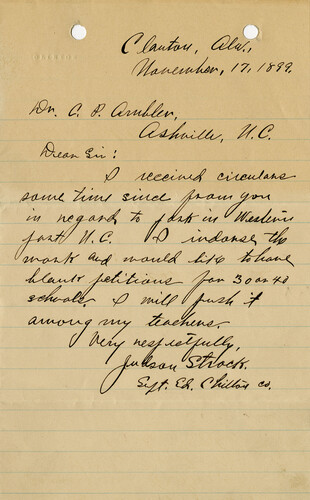 Clanton, Ala.,
November, 17, 1899.
Dr. C. P. Ambler,
Ashville, N.C.
Dear Sir:
I received circulars
some time since from you
in regard to park in Western
part N.C. I indorse the
work and would like to have
blank petitions for 30 or 40
schools I will push it
among my teachers.
Very respectfully,
Judson Strock.
Supt. Ed. Chilton co.